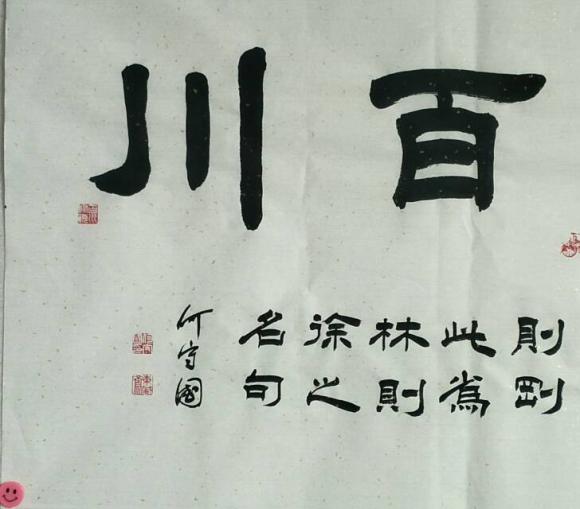 百川
則剛
此為
林則
徐之
名句
何守國